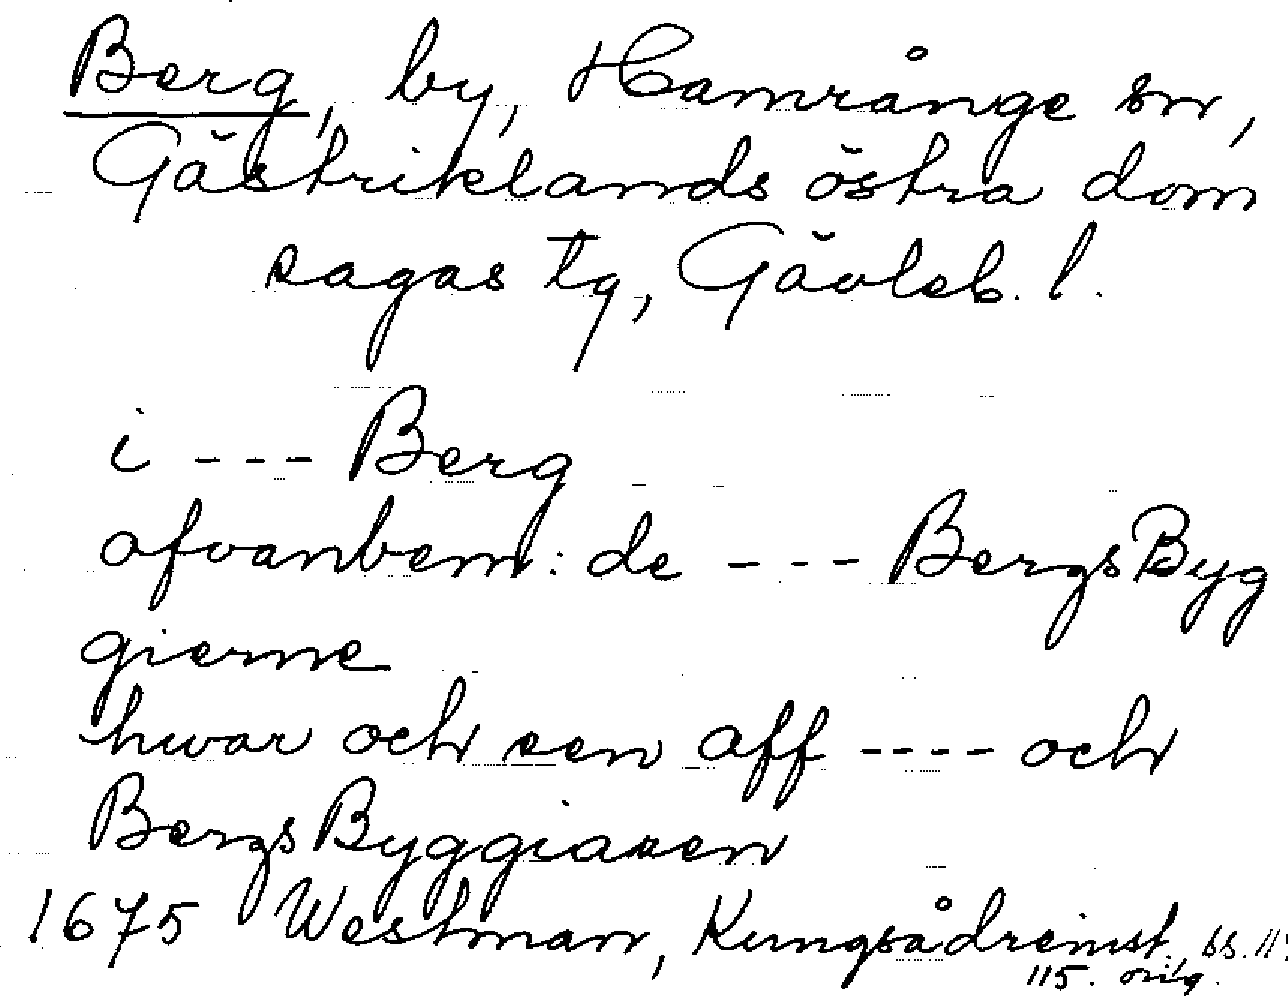 Berg, by, Hamrånge sn,
Gästriklands östra dom
sagas tg, Gävleb. l.
i --- Berg
ofvanbem: de --- BergsByg
gierne
hwar och een aff ---- och
BergsByggiaren
1675 Westman, Kungsådreinst., ss. 114
115. orig.